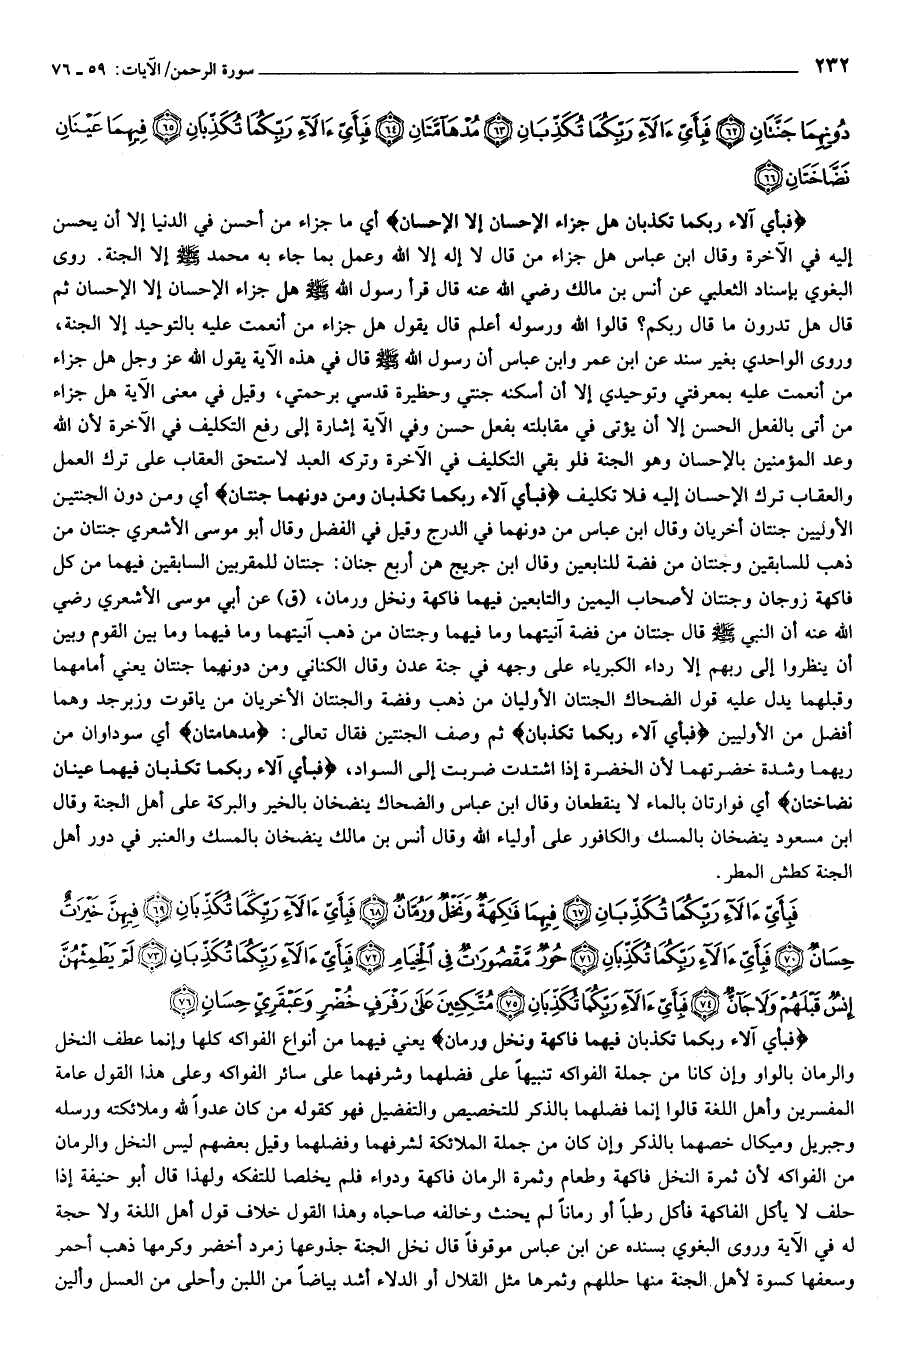 ٢٣٢ سورة الرحمن/ الآيات: ٥٩ ـ ٧٦
دُونِهِمَا جَنَّتَانِ ﴿٦٢﴾ فَبِأَيِّ ءَالَآءِ رَبِّكُمَا تُكَذِّبَانِ ﴿٦٣﴾ مُدْهَامَّتَانِ ﴿٦٤﴾ فَبِأَيِّ ءَالَآءِ رَبِّكُمَا تُكَذِّبَانِ ﴿٦٥﴾ فِيهِمَا عَيْنَانِ
نَضَّاخَتَانِ ﴿٦٦﴾
﴿فبأي آلاء ربكما تكذبان هل جزاء الإحسان إلا الإحسان﴾ أي ما جزاء من أحسن في الدنيا إلا أن يحسن
إليه في الآخرة وقال ابن عباس هل جزاء من قال لا إله إلا الله وعمل بما جاء به محمد ﷺ إلا الجنة. روى
البغوي بإسناد الثعلبي عن أنس بن مالك رضي الله عنه قال قرأ رسول الله ﷺ هل جزاء الإحسان إلا الإحسان ثم
قال هل تدرون ما قال ربكم؟ قالوا الله ورسوله أعلم قال يقول هل جزاء من أنعمت عليه بالتوحيد إلا الجنة،
وروى الواحدي بغير سند عن ابن عمر وابن عباس أن رسول الله ﷺ قال في هذه الآية يقول الله عز وجل هل جزاء
من أنعمت عليه بمعرفتي وتوحيدي إلا أن أسكنه جنتي وحظيرة قدسي برحمتي، وقيل في معنى الآية هل جزاء
من أتى بالفعل الحسن إلا أن يؤتى في مقابلته بفعل حسن وفي الآية إشارة إلى رفع التكليف في الآخرة لأن الله
وعد المؤمنين بالإحسان وهو الجنة فلو بقي التكليف في الآخرة وتركه العبد لاستحق العقاب على ترك العمل
والعقاب ترك الإحسان إليه فلا تكليف ﴿فبأي آلاء ربكما تكذبان ومن دونهما جنتان﴾ أي ومن دون الجنتين
الأوليين جنتان أخريان وقال ابن عباس من دونهما في الدرج وقيل في الفضل وقال أبو موسى الأشعري جنتان من
ذهب للسابقين وجنتان من فضة للتابعين وقال ابن جريج هن أربع جنان: جنتان للمقربين السابقين فيهما من كل
فاكهة زوجان وجنتان لأصحاب اليمين والتابعين فيهما فاكهة ونخل ورمان، (ق) عن أبي موسى الأشعري رضي
الله عنه أن النبي ﷺ قال جنتان من فضة آنيتهما وما فيهما وجنتان من ذهب آنيتهما وما فيهما وما بين القوم وبين
أن ينظروا إلى ربهم إلا رداء الكبرياء على وجهه في جنة عدن وقال الكناني ومن دونهما جنتان يعني أمامهما
وقبلهما يدل عليه قول الضحاك الجنتان الأوليان من ذهب وفضة والجنتان الأخريان من ياقوت وزبرجد وهما
أفضل من الأوليين ﴿فبأي آلاء ربكما تكذبان﴾ ثم وصف الجنتين فقال تعالى: ﴿مدهامتان﴾ أي سوداوان من
ريهما وشدة خضرتهما لأن الخضرة إذا اشتدت ضربت إلى السواد، ﴿فبأي آلاء ربكما تكذبان فيهما عينان
نضاختان﴾ أي فوارتان بالماء لا ينقطعان وقال ابن عباس والضحاك ينضخان بالخير والبركة على أهل الجنة وقال
ابن مسعود ينضخان بالمسك والكافور على أولياء الله وقال أنس بن مالك ينضخان بالمسك والعنبر في دور أهل
الجنة كطش المطر.
فَبِأَيِّ ءَالَآءِ رَبِّكُمَا تُكَذِّبَانِ ﴿٦٧﴾ فِيهِمَا فَٰكِهَةٌ وَنَخْلٌ وَرُمَّانٌ ﴿٦٨﴾ فَبِأَيِّ ءَالَآءِ رَبِّكُمَا تُكَذِّبَانِ ﴿٦٩﴾ فِيهِنَّ خَيْرَٰتٌ
حِسَانٌ ﴿٧٠﴾ فَبِأَيِّ ءَالَآءِ رَبِّكُمَا تُكَذِّبَانِ ﴿٧١﴾ حُورٌ مَّقْصُورَٰتٌ فِى ٱلْخِيَامِ ﴿٧٢﴾ فَبِأَيِّ ءَالَآءِ رَبِّكُمَا تُكَذِّبَانِ ﴿٧٣﴾ لَمْ يَطْمِثْهُنَّ
إِنسٌ قَبْلَهُمْ وَلَا جَآنٌّ ﴿٧٤﴾ فَبِأَيِّ ءَالَآءِ رَبِّكُمَا تُكَذِّبَانِ ﴿٧٥﴾ مُتَّكِـِٔينَ عَلَىٰ رَفْرَفٍ خُضْرٍ وَعَبْقَرِىٍّ حِسَانٍ ﴿٧٦﴾
﴿فبأي آلاء ربكما تكذبان فيهما فاكهة ونخل ورمان﴾ يعني فيهما من أنواع الفواكه كلها وإنما عطف النخل
والرمان بالواو وإن كانا من جملة الفواكه تنبيهاً على فضلهما وشرفهما على سائر الفواكه وعلى هذا القول عامة
المفسرين وأهل اللغة قالوا إنما فضلهما بالذكر للتخصيص والتفضيل فهو كقوله من كان عدواً لله وملائكته ورسله
وجبريل وميكال خصهما بالذكر وإن كان من جملة الملائكة لشرفهما وفضلهما وقيل بعضهم ليس النخل والرمان
من الفواكه لأن ثمرة النخل فاكهة وطعام وثمرة الرمان فاكهة ودواء فلم يخلصا للتفكه ولهذا قال أبو حنيفة إذا
حلف لا يأكل الفاكهة فأكل رطباً أو رماناً لم يحنث وخالفه صاحباه وهذا القول خلاف قول أهل اللغة ولا حجة
له في الآية وروى البغوي بسنده عن ابن عباس موقوفاً قال نخل الجنة جذوعها زمرد أخضر وكرمها ذهب أحمر
وسعفها كسوة لأهل الجنة منها حللهم وثمرها مثل القلال أو الدلاء أشد بياضاً من اللبن وأحلى من العسل وألين